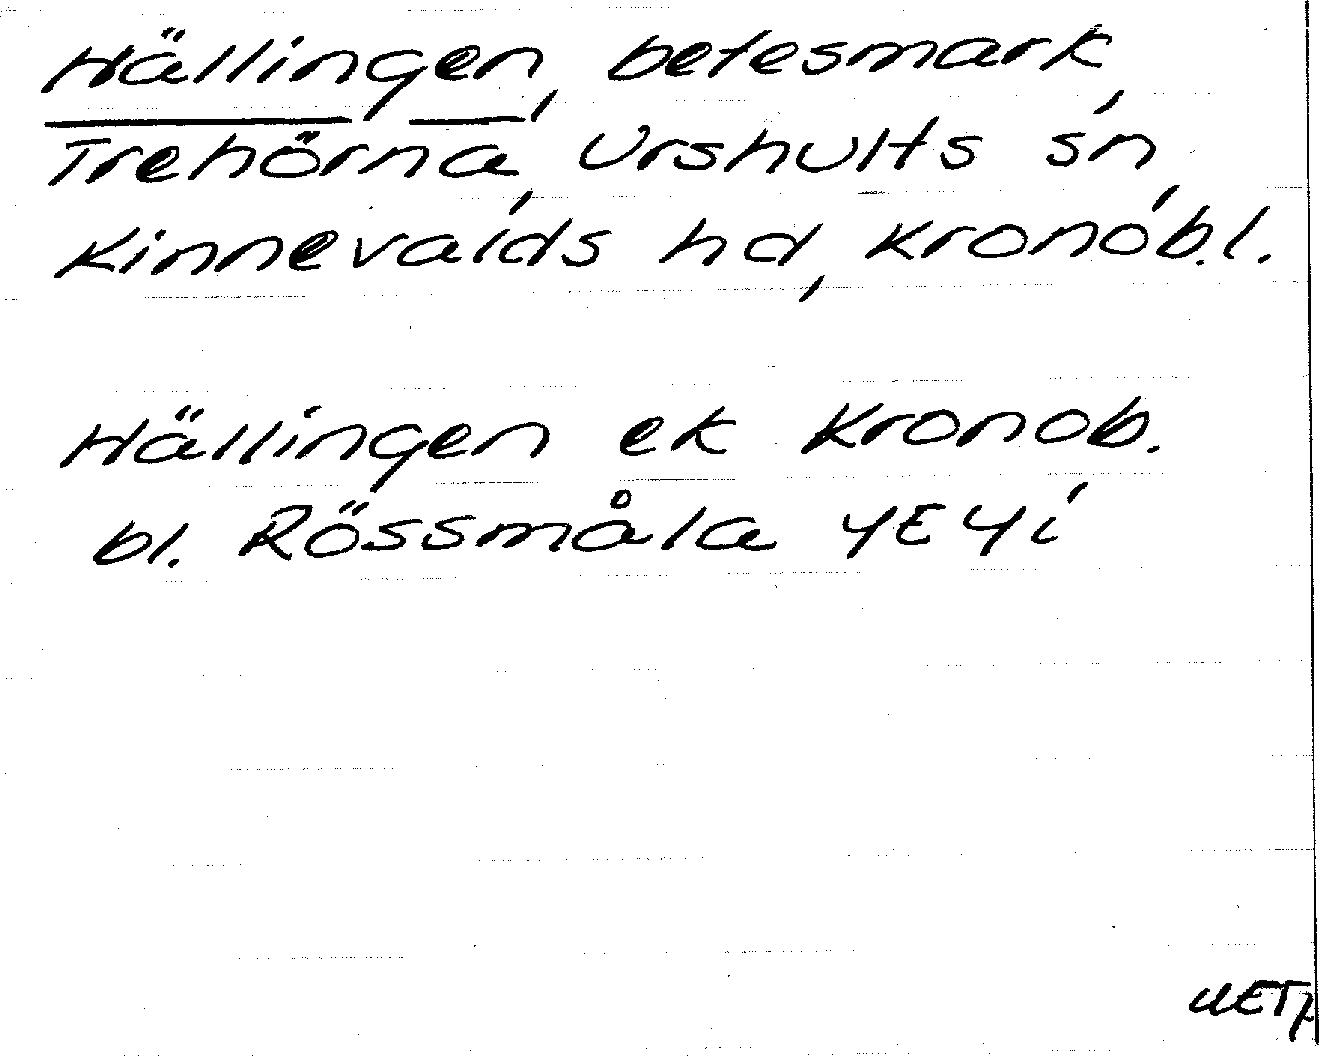 Hällingen, betesmark,
Trehörna, Urshults sn,
Kinnevalds hd, Kronob.l.
Hällingen ek Kronob.
bl. Rössmåla 4E4i